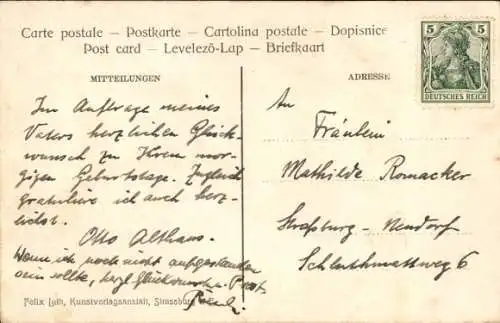 Carte postale – Postkarte – Cartolina postale – Dopisnice
Post card – Levelező-Lap – Briefkaart
MITTEILUNGEN
ADRESSE
5 5
DEUTSCHES REICH
Im Auftrage meines
Vaters herzlichen Glück-
wunsch zu Ihrem mor-
gigen Geburtstage. Zugleich
gratuliere ich auch herz-
lichst.
Otto Althaus.
Wenn ich noch nicht aufgestanden
sein sollte, herzl. Glückwunsch
An
Fräulein
Mathilde Romacker
Straßburg – Neudorf
Schluthmattweg 6
Felix Luib, Kunstverlagsanstalt, Strassburg